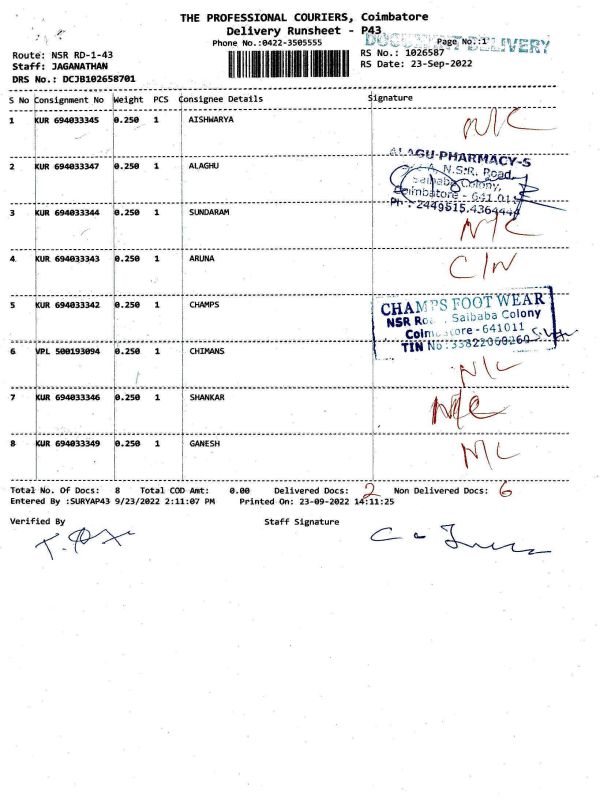 THE PROFESSIONAL COURIERS, Coimbatore
Delivery Runsheet - P43
Phone No.:0422-3505555
DOCUMENT DELIVERY
Page No.:1
Route: NSR RD-1-43
RS No.: 1026587
Staff: JAGANATHAN
RS Date: 23-Sep-2022
DRS No.: DCJB102658701
S No Consignment No Weight PCS Consignee Details Signature
1 KUR 694033345 0.250 1 AISHWARYA N/C
2 KUR 694033347 0.250 1 ALAGHU
ALAGU PHARMACY-S
A, N.S.R. Road,
Saibaba Colony,
Coimbatore - 641 011
Ph : 2449515,4364444
3 KUR 694033344 0.250 1 SUNDARAM N/C
4 KUR 694033343 0.250 1 ARUNA C/N
5 KUR 694033342 0.250 1 CHAMPS
CHAMPS FOOT WEAR
NSR Road, Saibaba Colony
Coimbatore - 641011
TIN No:33822060260
6 VPL 500193094 0.250 1 CHIMANS N/C
7 KUR 694033346 0.250 1 SHANKAR N/C
8 KUR 694033349 0.250 1 GANESH N/C
Total No. Of Docs: 8 Total COD Amt: 0.00 Delivered Docs: 2 Non Delivered Docs: 6
Entered By :SURYAP43 9/23/2022 2:11:07 PM Printed On: 23-09-2022 14:11:25
Verified By Staff Signature